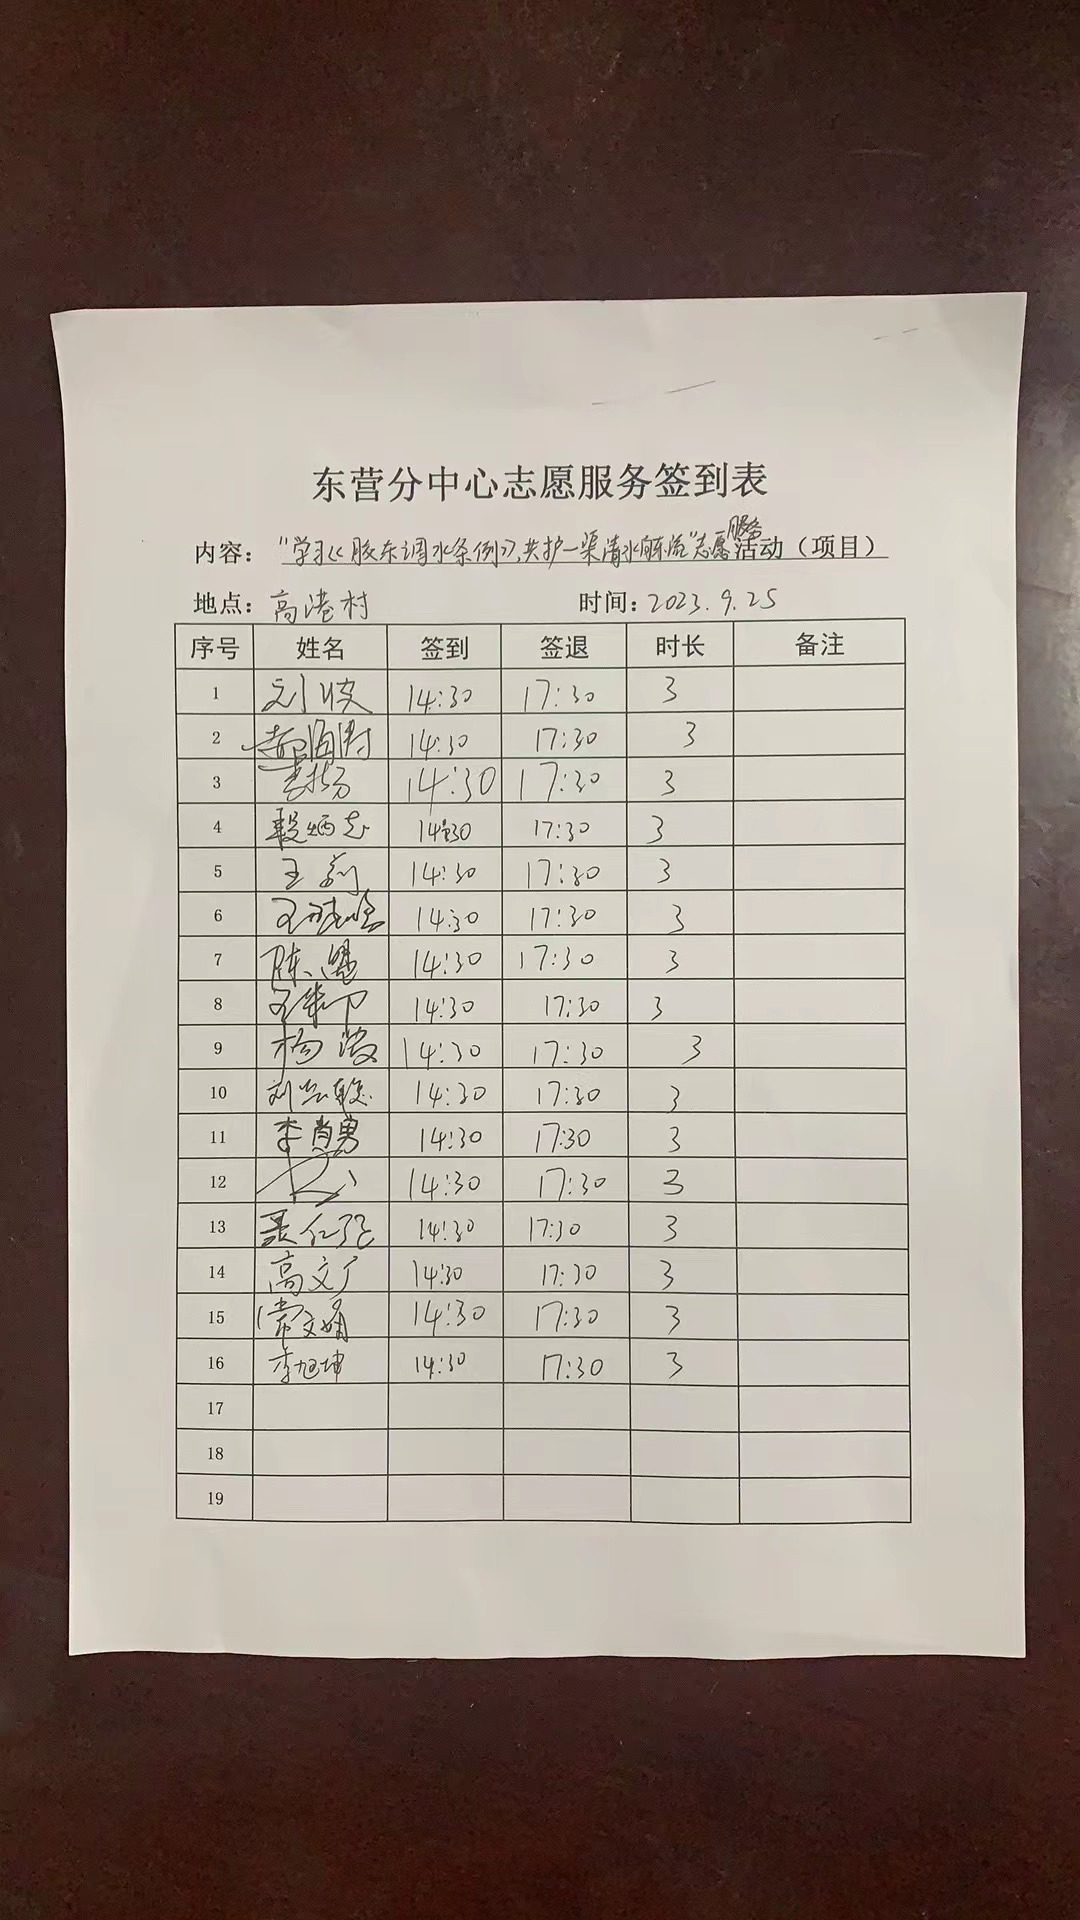 东营分中心志愿服务签到表
内容：“学习《胶东调水条例》，共护一渠清水东流”志愿服务活动（项目）
地点：高港村 时间：2023.9.25
序号 姓名 签到 签退 时长 备注
1 刘波 14:30 17:30 3
2 14:30 17:30 3
3 14:30 17:30 3
4 段炳志 14:30 17:30 3
5 王莉 14:30 17:30 3
6 14:30 17:30 3
7 陈 14:30 17:30 3
8 14:30 17:30 3
9 杨波 14:30 17:30 3
10 刘 14:30 17:30 3
11 李肖勇 14:30 17:30 3
12 14:30 17:30 3
13 聂仁强 14:30 17:30 3
14 高文广 14:30 17:30 3
15 常文娟 14:30 17:30 3
16 李旭坤 14:30 17:30 3
17
18
19